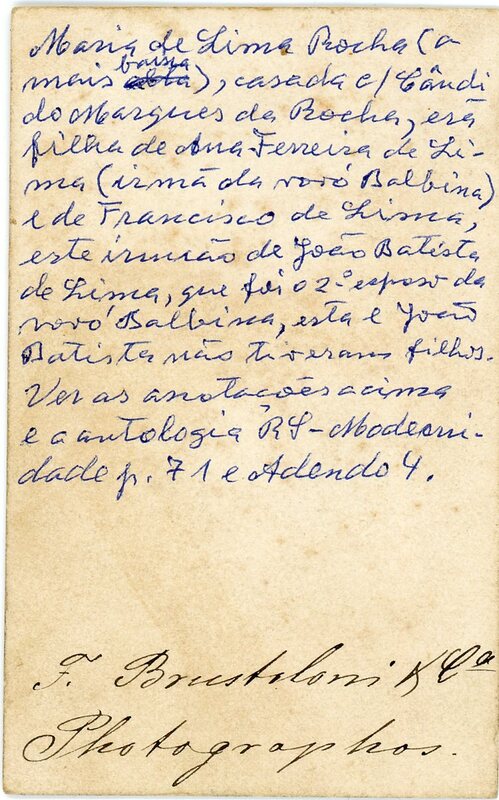 Maria de Lima Rocha (a
mais baixa alta), casada c/ Cândi
do Marques da Rocha, era
filha de Ana Ferreira de Li-
ma (irmã da vovó Balbina)
e de Francisco de Lima,
este irmão de João Batista
de Lima, que foi o 2º esposo da
vovó Balbina, esta e João
Batista não tiveram filhos.
Ver as anotações acima
e a antologia RS-Moderni-
dade p. 71 e Adendo 4.
F. Brustoloni & Cª
Photographos.